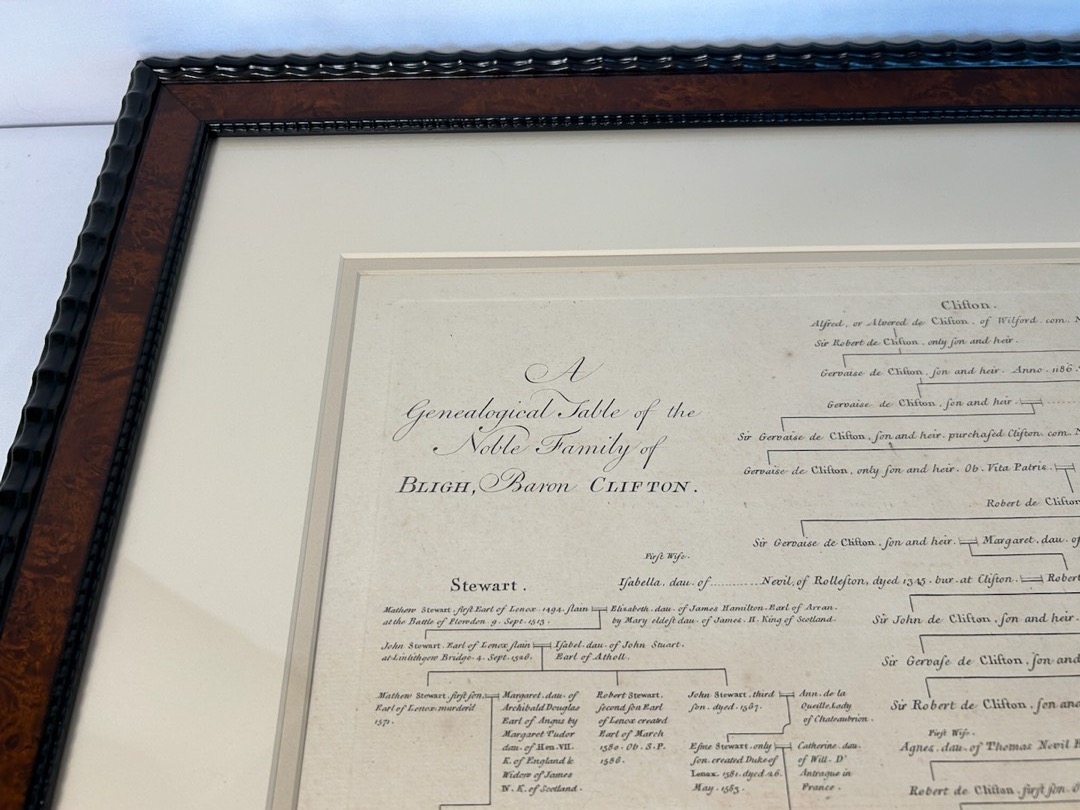 A
Genealogical Table of the
Noble Family of
BLIGH, Baron CLIFTON.
Clifton.
Alfred, or Alvered de Clifton, of Wilford. com.
Sir Robert de Clifton, only ſon and heir.
Gervaise de Clifton, ſon and heir. Anno. 1186.
Gervaise de Clifton, ſon and heir
Sir Gervaise de Clifton, ſon and heir. purchaſed Clifton. com. N
Gervaise de Clifton, only ſon and heir. Ob. Vita Patris.
Robert de Clifton
Sir Gervaise de Clifton, ſon and heir. Margaret. dau. of
Firſt Wife.
Iſabella. dau. of .......... Nevil, of Rolleſton, dyed 1345. bur. at Clifton. Robert
Sir John de Clifton, ſon and heir.
Sir Gervaſe de Clifton, ſon and
Sir Robert de Clifton, ſon and
Firſt Wife.
Agnes. dau. of Thomas Nevil
Robert de Clifton, firſt ſon.
Stewart.
Mathew Stewart. firſt Earl of Lenox. 1494. ſlain
at the Battle of Flowdon. 9. Sept. 1513.
Elizabeth. dau. of James Hamilton. Earl of Arran.
by Mary eldeſt dau. of James. II. King of Scotland.
John Stewart. Earl of Lenox ſlain
at Linlithgow Bridge. 4. Sept. 1526.
Iſabel. dau. of John Stuart.
Earl of Atholl.
Mathew Stewart. firſt ſon.
Earl of Lenox. murder'd
1571.
Margaret. dau. of
Archibald Douglas
Earl of Angus by
Margaret Tudor
dau. of Hen. VII.
K. of England &
Widow of James
IV. K. of Scotland.
Robert Stewart.
ſecond ſon Earl
of Lenox created
Earl of March
1580. Ob. S. P.
1586.
John Stewart. third
ſon. dyed. 1567.
Ann. de la
Queille Lady
of Chateaubrion.
Eſme Stewart. only
ſon. created Duke of
Lenox. 1581. dyed 26.
May. 1583.
Catherine. dau.
of Will. D'
Antrague in
France.